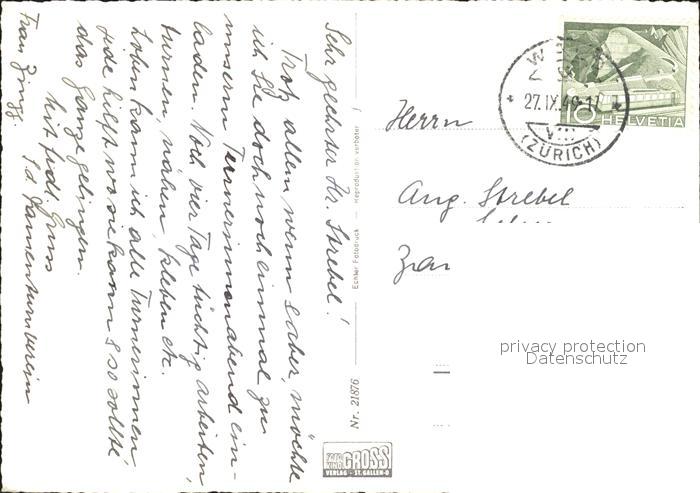 Sehr geehrter Hr. Strebel!
Trotz allem wenn & aber, möchte
ich Sie doch noch einmal zu
unserm Turnerinnenabend ein-
laden. Noch vier Tage tüchtig arbeiten,
turnen, nähen, kleben etc.
Loben kann ich alle Turnerinnen,
jede hilft wo sie kann & so sollte
das Ganze gelingen.
Mit frdl. Gruss
f. d. Damenturnverein
Frau Zingg.
Echter Fotodruck — Reproduktion verboten
Nr. 21876
FOTO GROSS
VERLAG - ST. GALLEN-O
HELVETIA
27.IX.49-17
VIII
(ZÜRICH)
Herrn
Aug. Strebel
privacy protection
Datenschutz